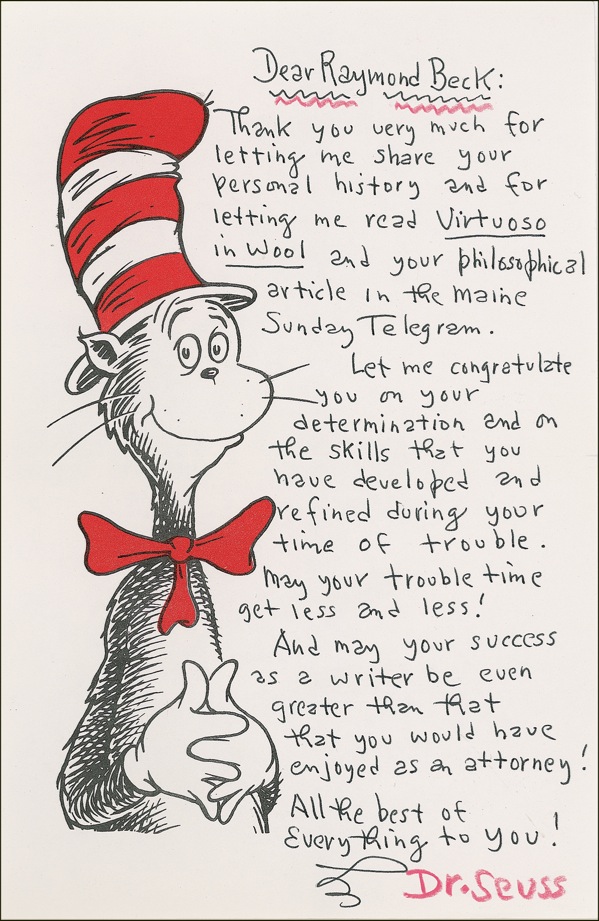 Dear Raymond Beck:
Thank you very much for
letting me share your
personal history and for
letting me read Virtuoso
in Wool and your philosophical
article in the Maine
Sunday Telegram.
Let me congratulate
you on your
determination and on
the skills that you
have developed and
refined during your
time of trouble.
May your trouble time
get less and less!
And may your success
as a writer be even
greater than that
that you would have
enjoyed as an attorney!
All the best of
Everything to you!
Dr. Seuss